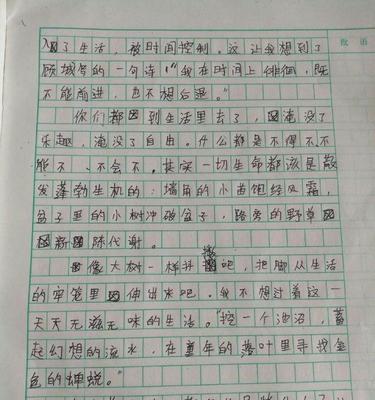 入了生活，被时间控制。这让我想到了
顾城写的一句诗！“我在时间上徘徊，既
不能前进，也不想后退。”
你们都到生活里去了，淹没了
乐趣，淹没了自由。什么都是不得不、不
能不、不会不。其实一切生命都该是散
发蓬勃生机的：墙角的小苗饱经风霜，
盆子里的小树冲破盆子，路旁的野草
新陈代谢。
像大树一样抖擞吧，把脚从生活
的牢笼里伸出来吧。我不想过着这一
天天无滋无味的生活。“挖一个池沼，蓄
起幻想的流水，在童年的落叶里寻找金
色的蝉蜕。”